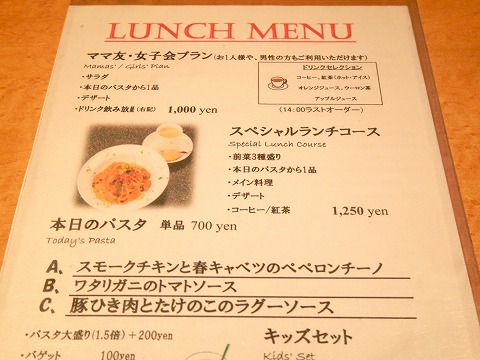 LUNCH MENU
ママ友・女子会プラン(お1人様や、男性の方もご利用いただけます)
Mamas' / Girls' Plan
・サラダ
・本日のパスタから1品
・デザート
・ドリンク飲み放題(右記) 1,000 yen
ドリンクセレクション
コーヒー、紅茶(ホット・アイス)
オレンジジュース、ウーロン茶
アップルジュース
(14:00ラストオーダー)
スペシャルランチコース
Special Lunch Course
・前菜3種盛り
・本日のパスタから1品
・メイン料理
・デザート
・コーヒー/紅茶 1,250 yen
本日のパスタ 単品 700 yen
Today's Pasta
A、スモークチキンと春キャベツのペペロンチーノ
B、ワタリガニのトマトソース
C、豚ひき肉とたけのこのラグーソース
・パスタ大盛り(1.5倍)+200yen
・バゲット 100yen
キッズセット
Kids' Set